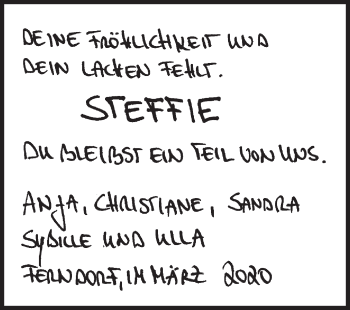 DEINE FRÖHLICHKEIT UND
DEIN LACHEN FEHLT.
STEFFIE
DU BLEIBST EIN TEIL VON UNS.
ANJA, CHRISTIANE, SANDRA
SYBILLE UND ULLA
FERNDORF, IM MÄRZ 2020